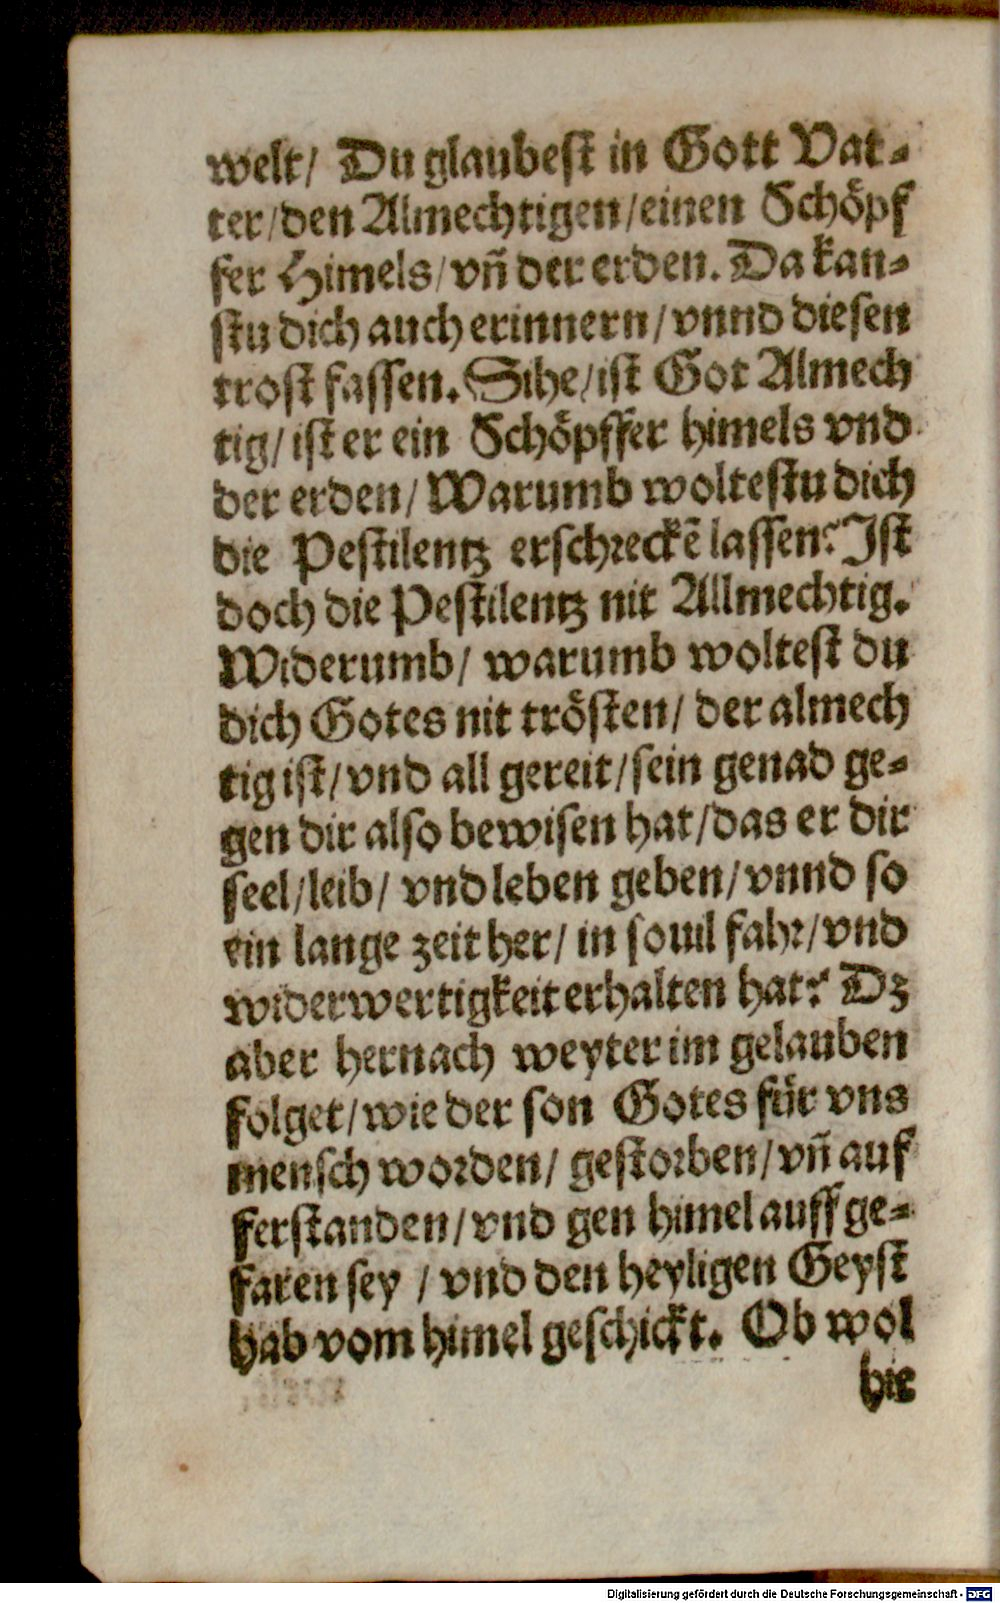 welt/ Du glaubest in Gott Vat-
ter/den Almechtigen/einen Schöpf
fer Himels/vñ der erden. Da kan-
stu dich auch erinnern/vnnd diesen
trost fassen. Sihe/ist Got Almech
tig/ist er ein Schöpffer himels vnd
der erden/Warumb woltestu dich
die Pestilentz erschreckẽ lassen? Ist
doch die Pestilentz nit Allmechtig.
Widerumb/ warumb woltest du
dich Gotes nit trösten/ der almech
tig ist/vnd all gereit/sein genad ge-
gen dir also bewisen hat/das er dir
seel/leib/ vnd leben geben/vnnd so
ein lange zeit her/ in souil fahr/vnd
widerwertigkeit erhalten hat? Dz
aber hernach weyter im gelauben
folget/wie der son Gotes für vns
mensch worden/ gestorben/vñ auf
ferstanden/vnd gen himel auff ge-
faren sey / vnd den heyligen Geyst
hab vom himel geschickt. Ob wol
hie
Digitalisierung gefördert durch die Deutsche Forschungsgemeinschaft - DFG